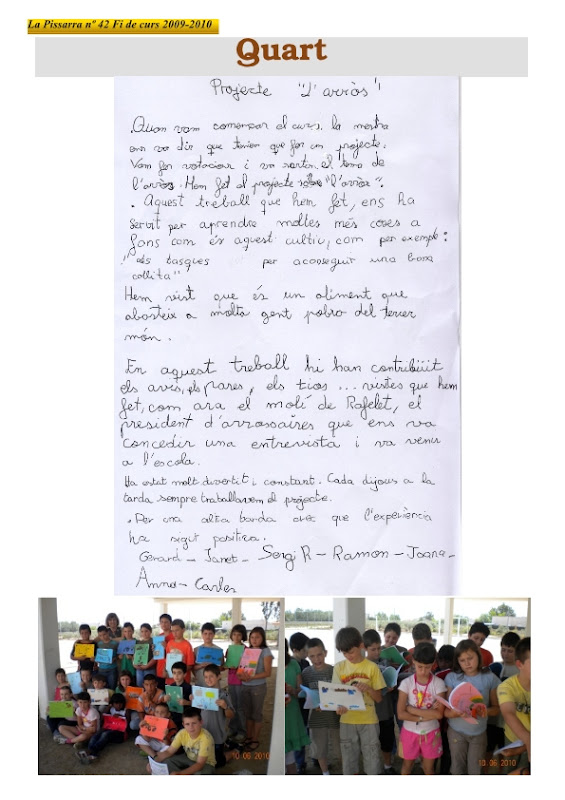 La Pissarra nº 42 Fi de curs 2009-2010
Quart
Projecte "L'arròs"
.Quan vam començar el curs, la mestra
ens va dir que teniem que fer un projecte.
Vam fer votacions i va sortir el tema de
l'arròs. Hem fet el projecte sobre "l'arròs".
. Aquest treball que hem fet, ens ha
servit per aprendre moltes més coses a
fons com és aquest cultiu, com per exemple:
"els tasques per aconseguir una bona
collita"
Hem vist que és un aliment que
abasteix a molta gent pobre del tercer
món.
En aquest treball hi han contribüit
els avis, els pares, els tios... visites que hem
fet, com ara el molí de Rafelet, el
president d'arrossaires que ens va
concedir una entrevista i va venir
a l'escola.
Ha estat molt divertit i constant. Cada dijous a la
tarda sempre treballavem el projecte.
.Per una altra banda crec que l'experiència
ha sigut positiva.
Gerard - Janet - Sergi R - Ramon - Joana -
Anna - Carles
10 06 2010
10 06 2010